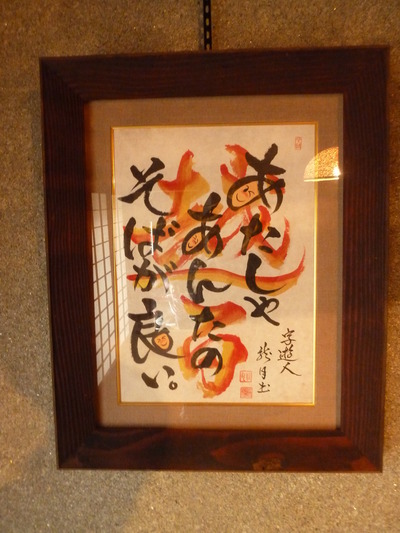 あたしゃ
あんたの
そばが良い。
字遊人